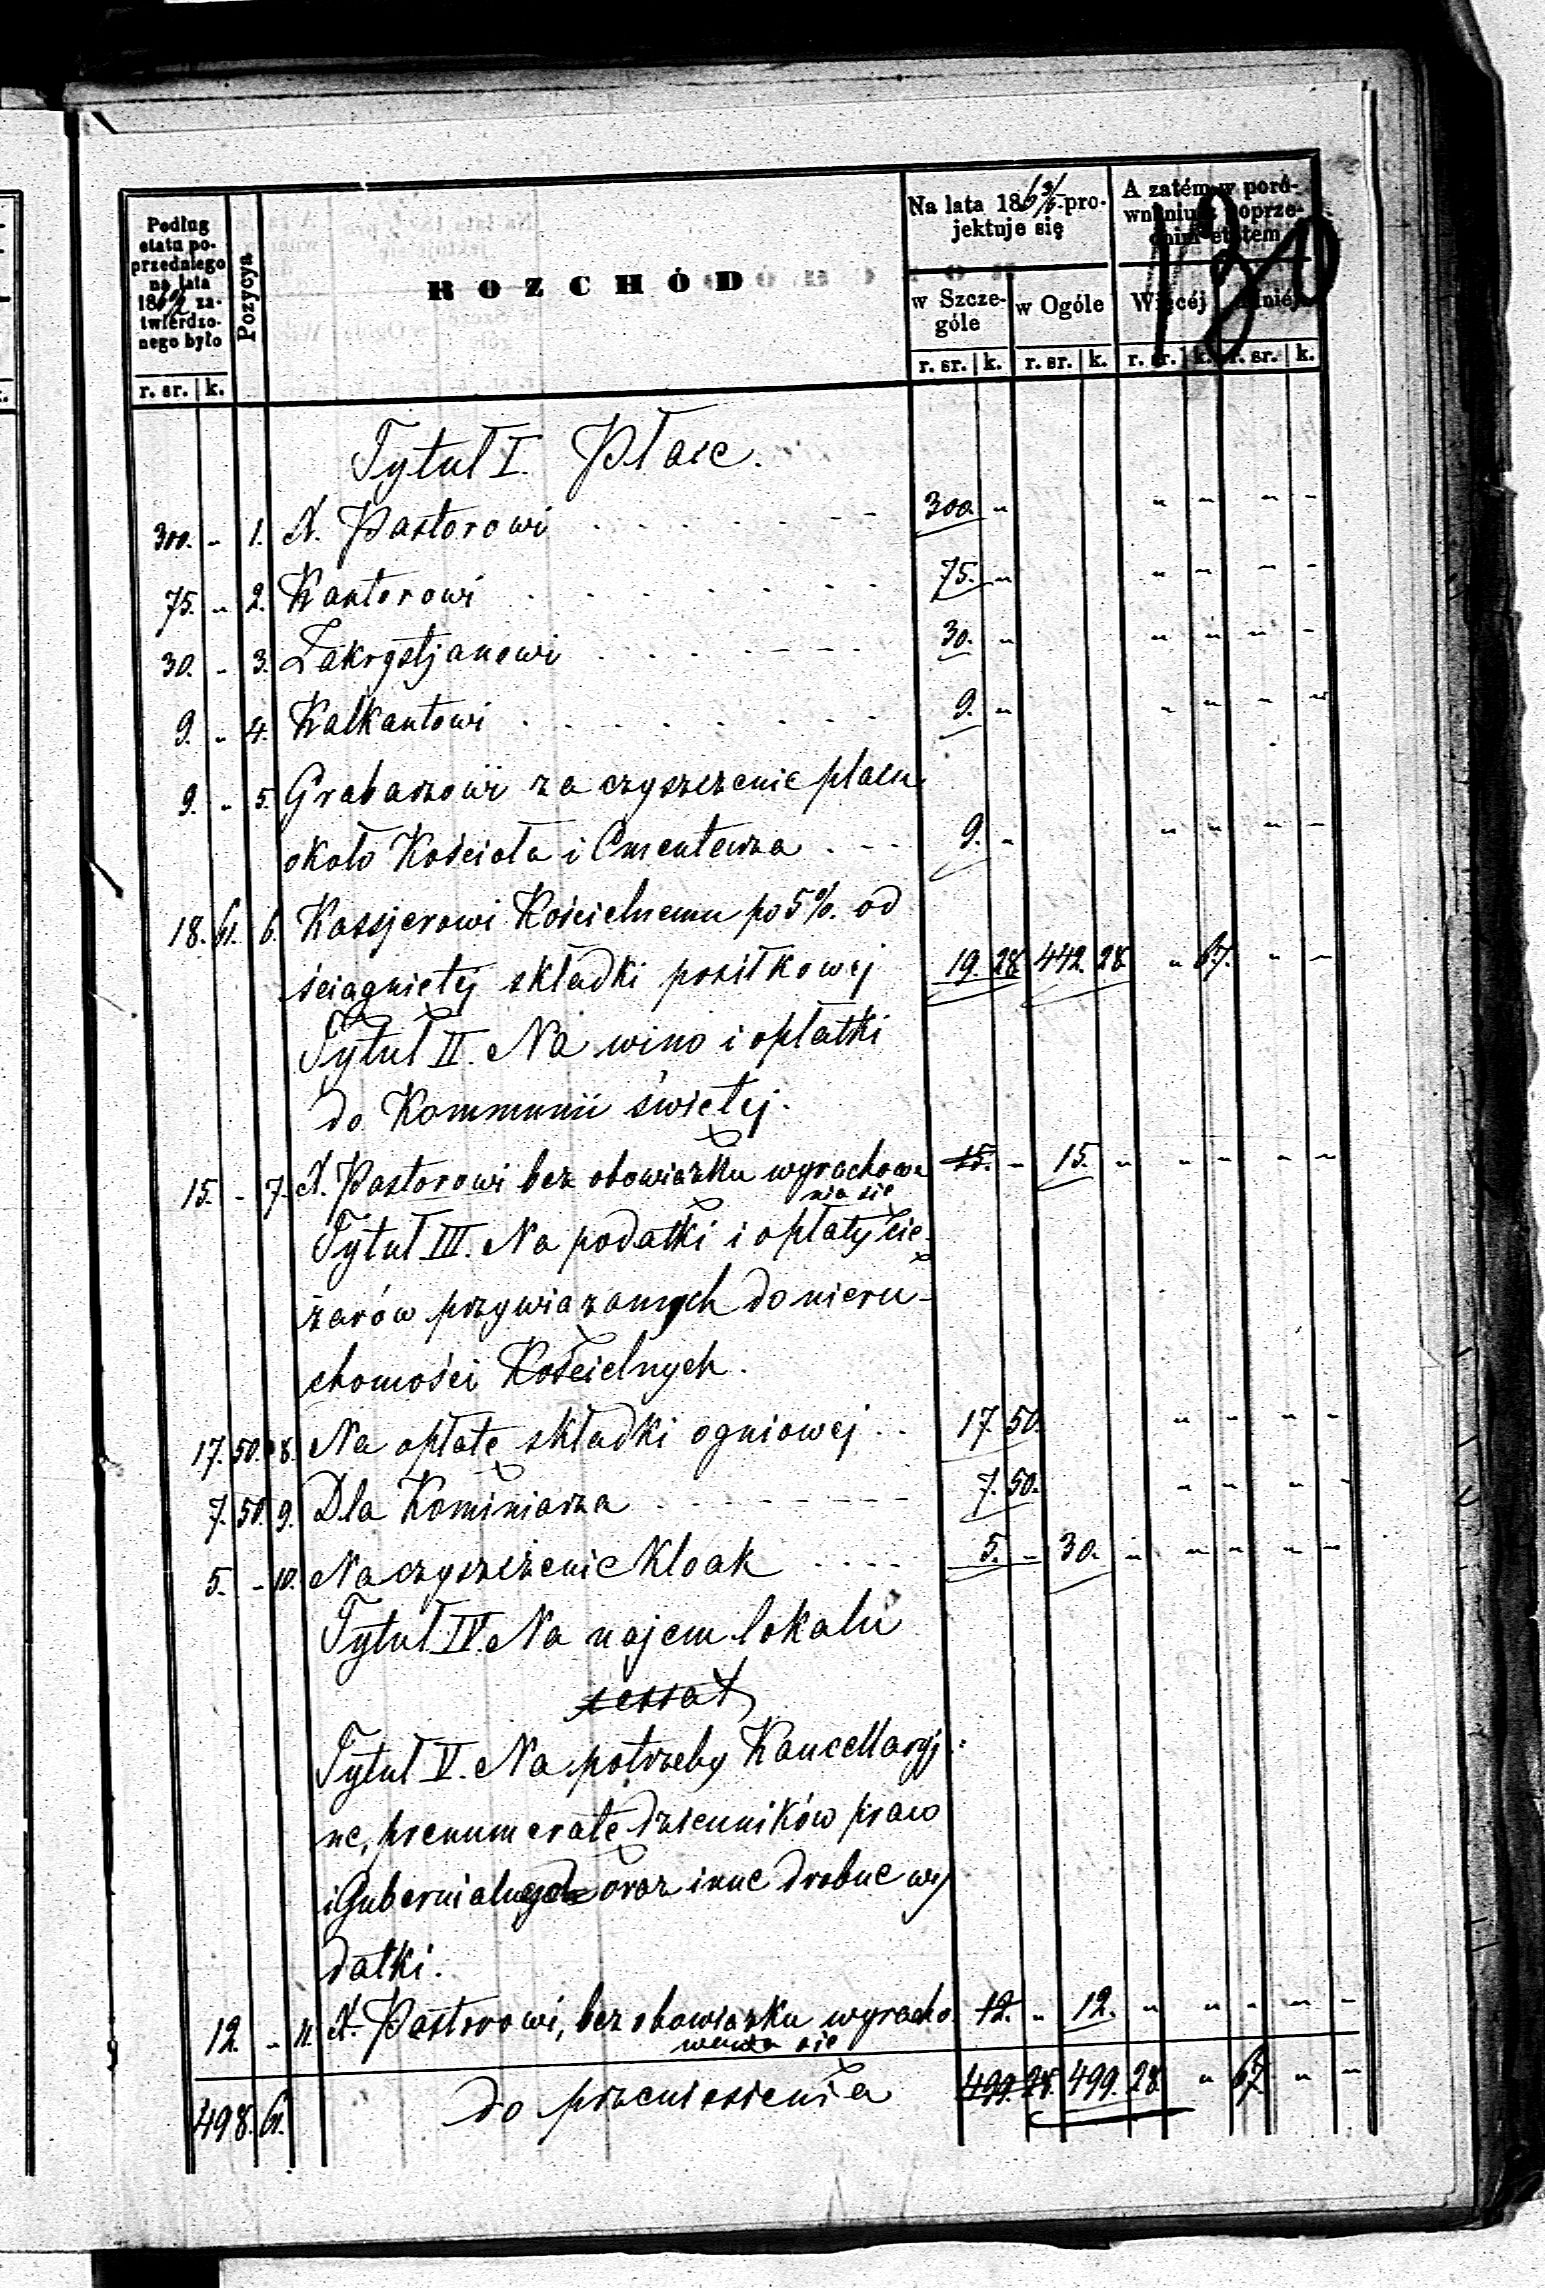 Podług etatu poprzedniego na lata 18 zatwierdzonego było
Pozycya
ROZCHÓD
Na lata 186 projektuje się
A zatém w porównaniu z poprzednim etatem
130
w Szczególe
w Ogóle
Więcéj
Mniéj
r. sr. | k.
r. sr. | k.
r. sr. | k.
r. sr. | k.
r. sr. | k.
Tytuł I. Płace.
300. - 1. X. Pastorowi 300. "
75. " 2. Kantorowi 75. "
30. - 3. Zakrystjanowi 30. "
9. " 4. Kalkantowi 9. "
9. " 5. Grabarzowi za czyszczenie placu
około Kościoła i Cmentarza 9. "
18. 61. 6. Kassjerowi Kościelnemu po 5%. od
ściągniętej składki posiłkowej 19. 28 442. 28. " 67. " "
Tytuł II. Na wino i opłatki
do Kommunii świętej.
15. - 7. X. Pastorowi bez obowiązku wyrachowa 15. " 15. "
nia się
Tytuł III. Na podatki i opłaty cię-
żarów przywiązanych do nieru-
chomości Kościelnych.
17. 50. 8. Na opłatę składki ogniowej 17. 50.
7. 50. 9. Dla Kominiarza 7. 50.
5. - 10. Na czyszczenie Kloak 5. " 30. "
Tytuł IV. Na najem lokalu
cessat
Tytuł V. Na potrzeby Kancellaryj-
ne, prenumeratę dzienników praw
i Gubernialnych oraz inne drobne wy
datki.
12. - 11. X. Pastorowi, bez obowiązku wyracho 12. " 12. "
wania się
498. 61. do przeniesienia 499. 28. 499. 28. " 67. " "